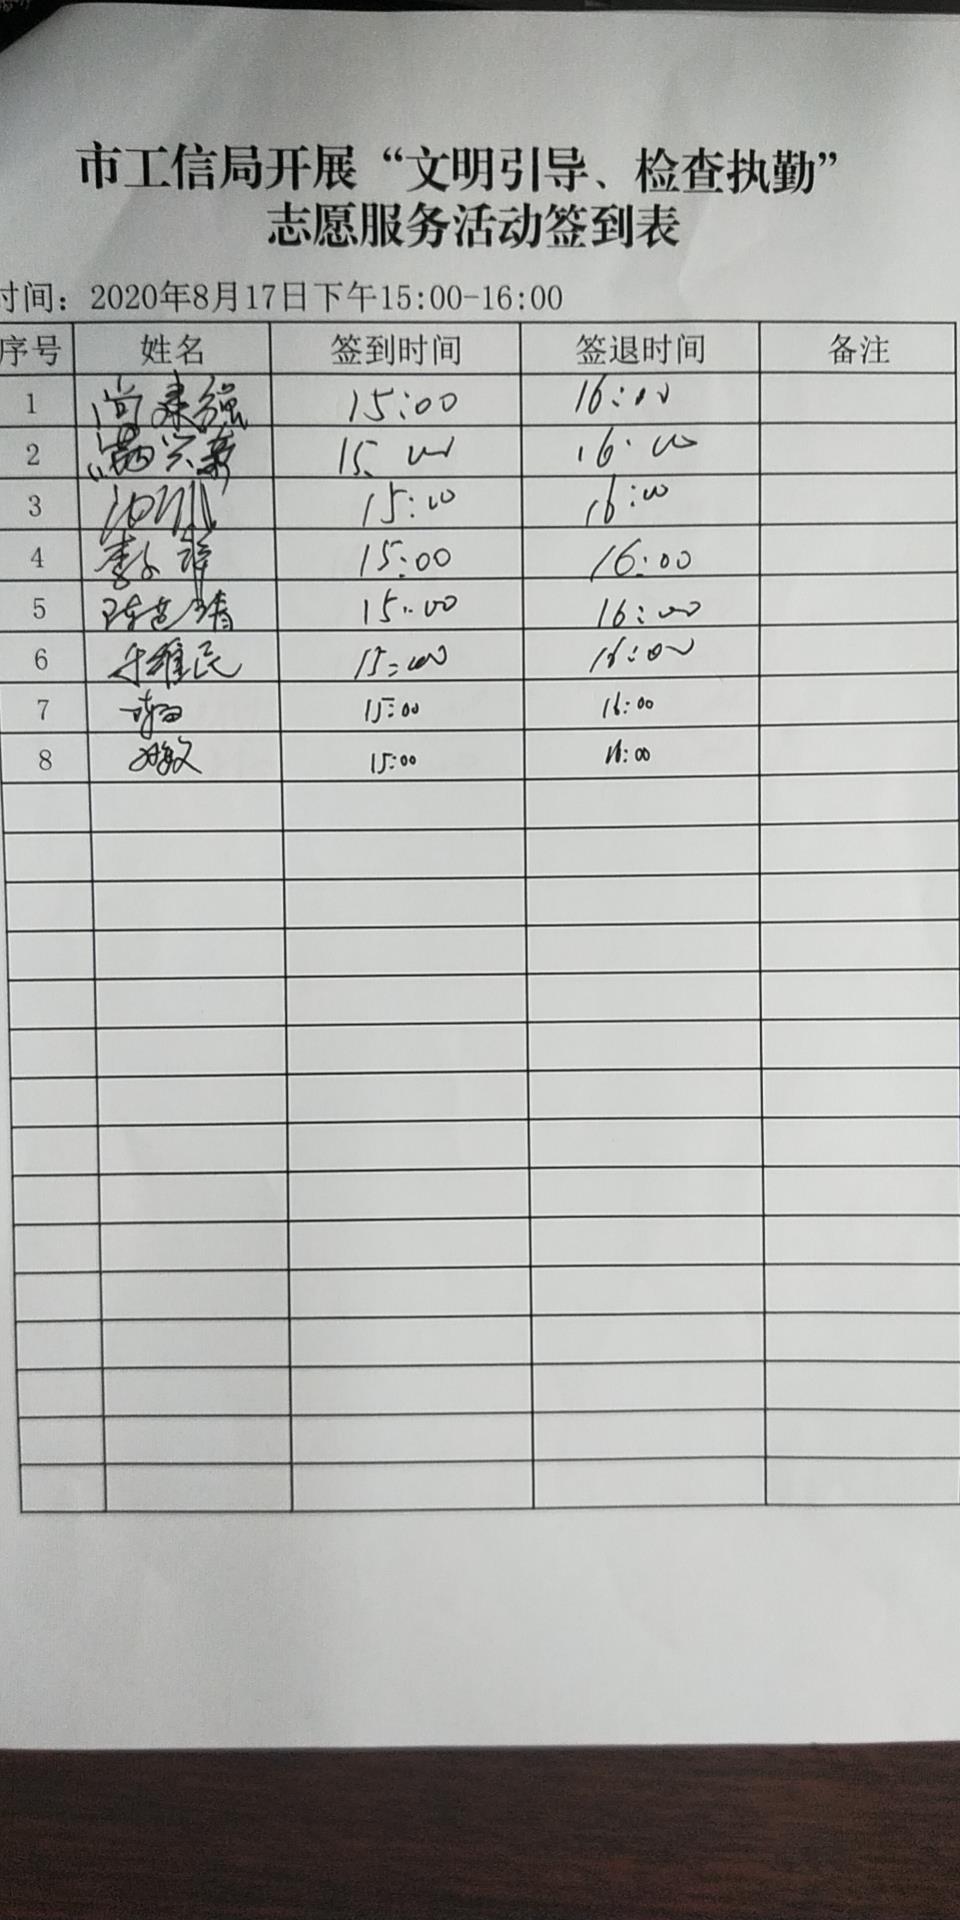 市工信局开展“文明引导、检查执勤”
志愿服务活动签到表
时间：2020年8月17日下午15:00-16:00
序号 姓名 签到时间 签退时间 备注
1 尚建强 15:00 16:00
2 15:00 16:00
3 15:00 16:00
4 15:00 16:00
5 15:00 16:00
6 维民 15:00 16:00
7 15:00 16:00
8 15:00 16:00